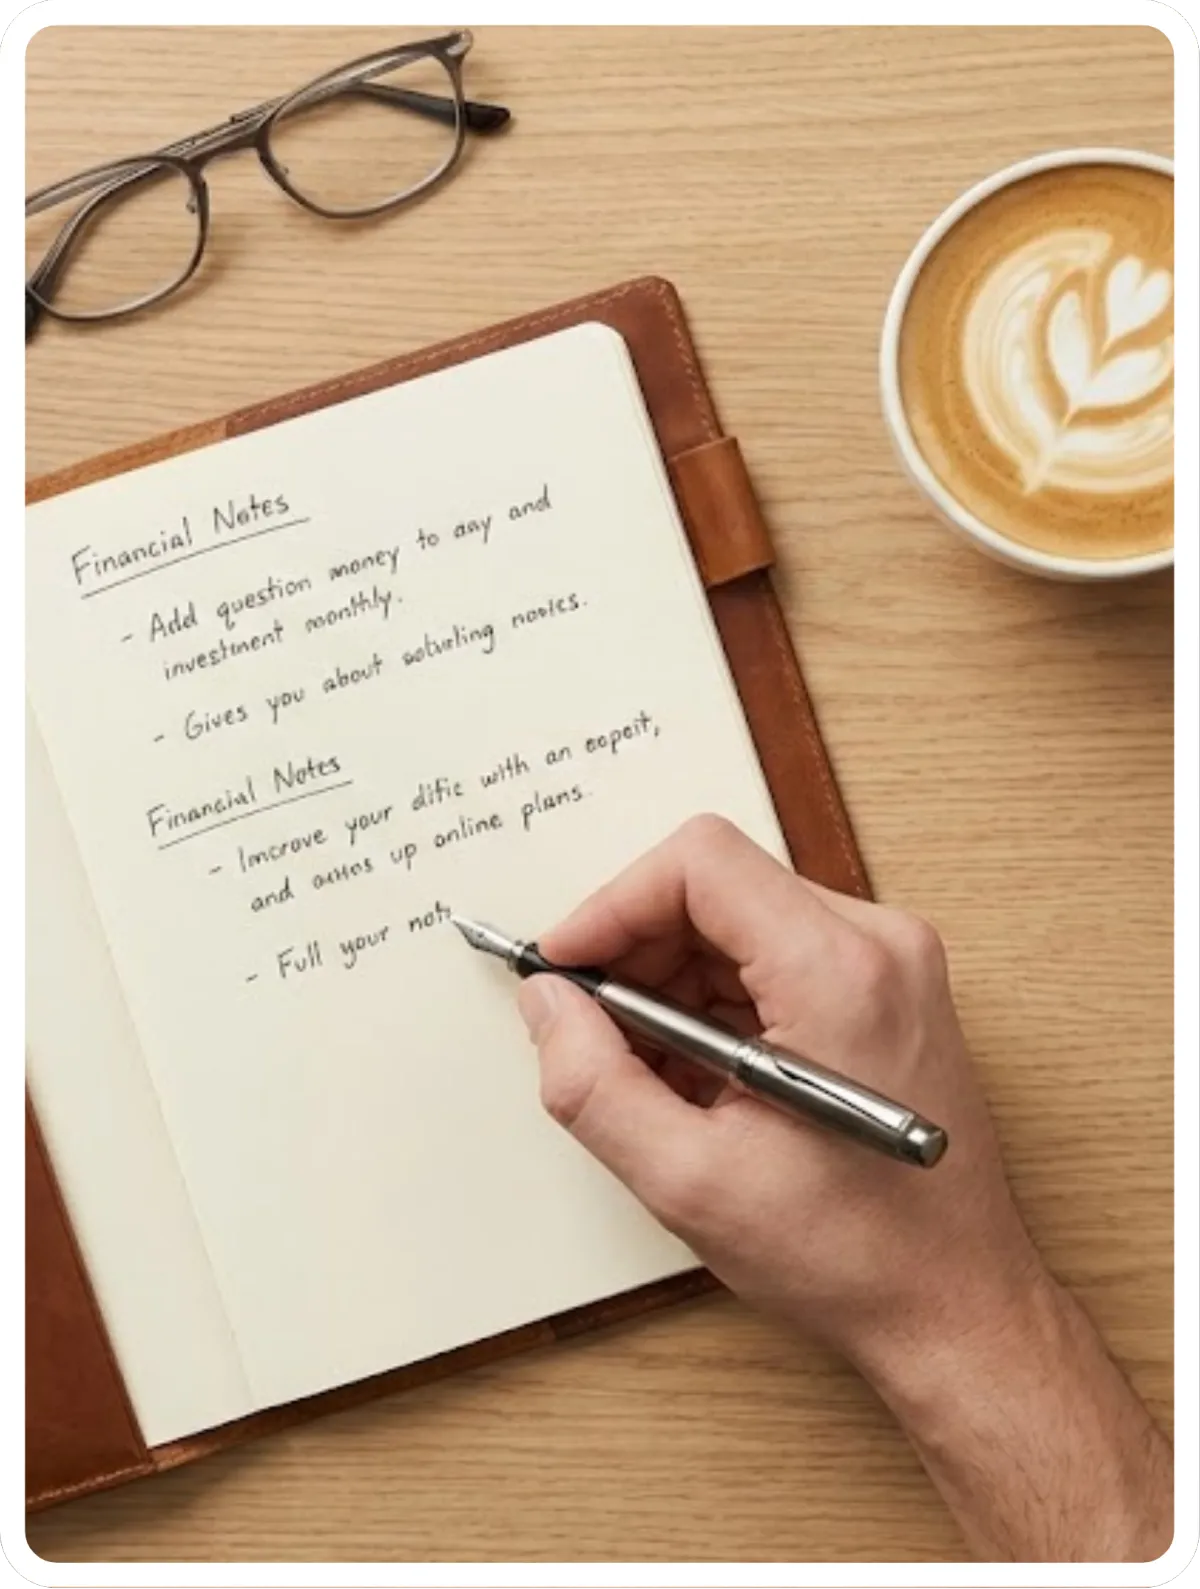 Financial Notes
- Add question money to day and
investment monthly.
- Gives you about
Financial Notes
- Imcrove your difie with an expeit,
and up online plans.
- Full your note